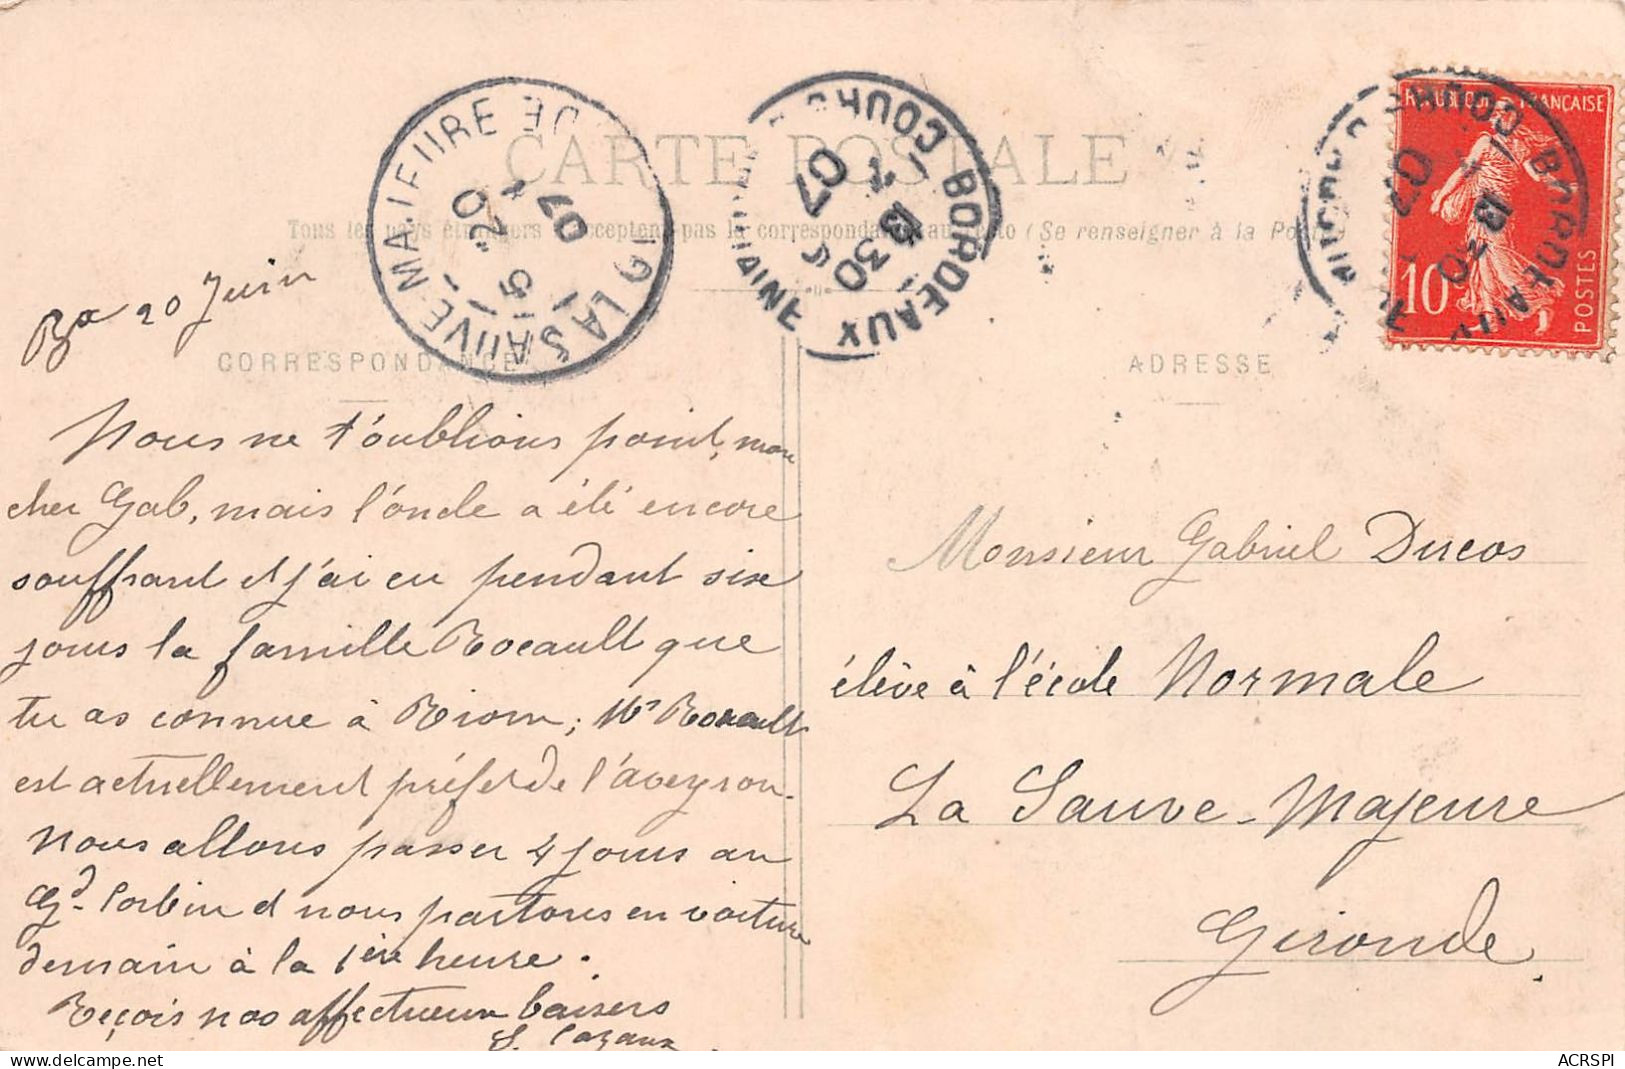 CARTE POSTALE
Tous les pays étrangers n'acceptent pas la correspondance au recto (Se renseigner à la Poste)
CORRESPONDANCE
ADRESSE
RÉPUBLIQUE FRANÇAISE
10
POSTES
LA SAUVE MAJEURE
GIRONDE
20
5
07
BORDEAUX
COURS
13 30
07
BORDEAUX
COURS
13 30
07
Bx 20 Juin
Nous ne t'oublions point, mon
cher Gab, mais l'oncle a été encore
souffrant et j'ai eu pendant six
jours la famille Rocault que
tu as connue à Riom; Mr Rocault
est actuellement préfet de l'aveyron.
Nous allons passer 4 jours au
Gd Corbin et nous partons en voiture
demain à la 1ère heure.
Reçois nos affectueux baisers
S. Cazaux
Monsieur Gabriel Ducos
élève à l'école Normale
La Sauve-Majeure
Gironde.
ACRSPI